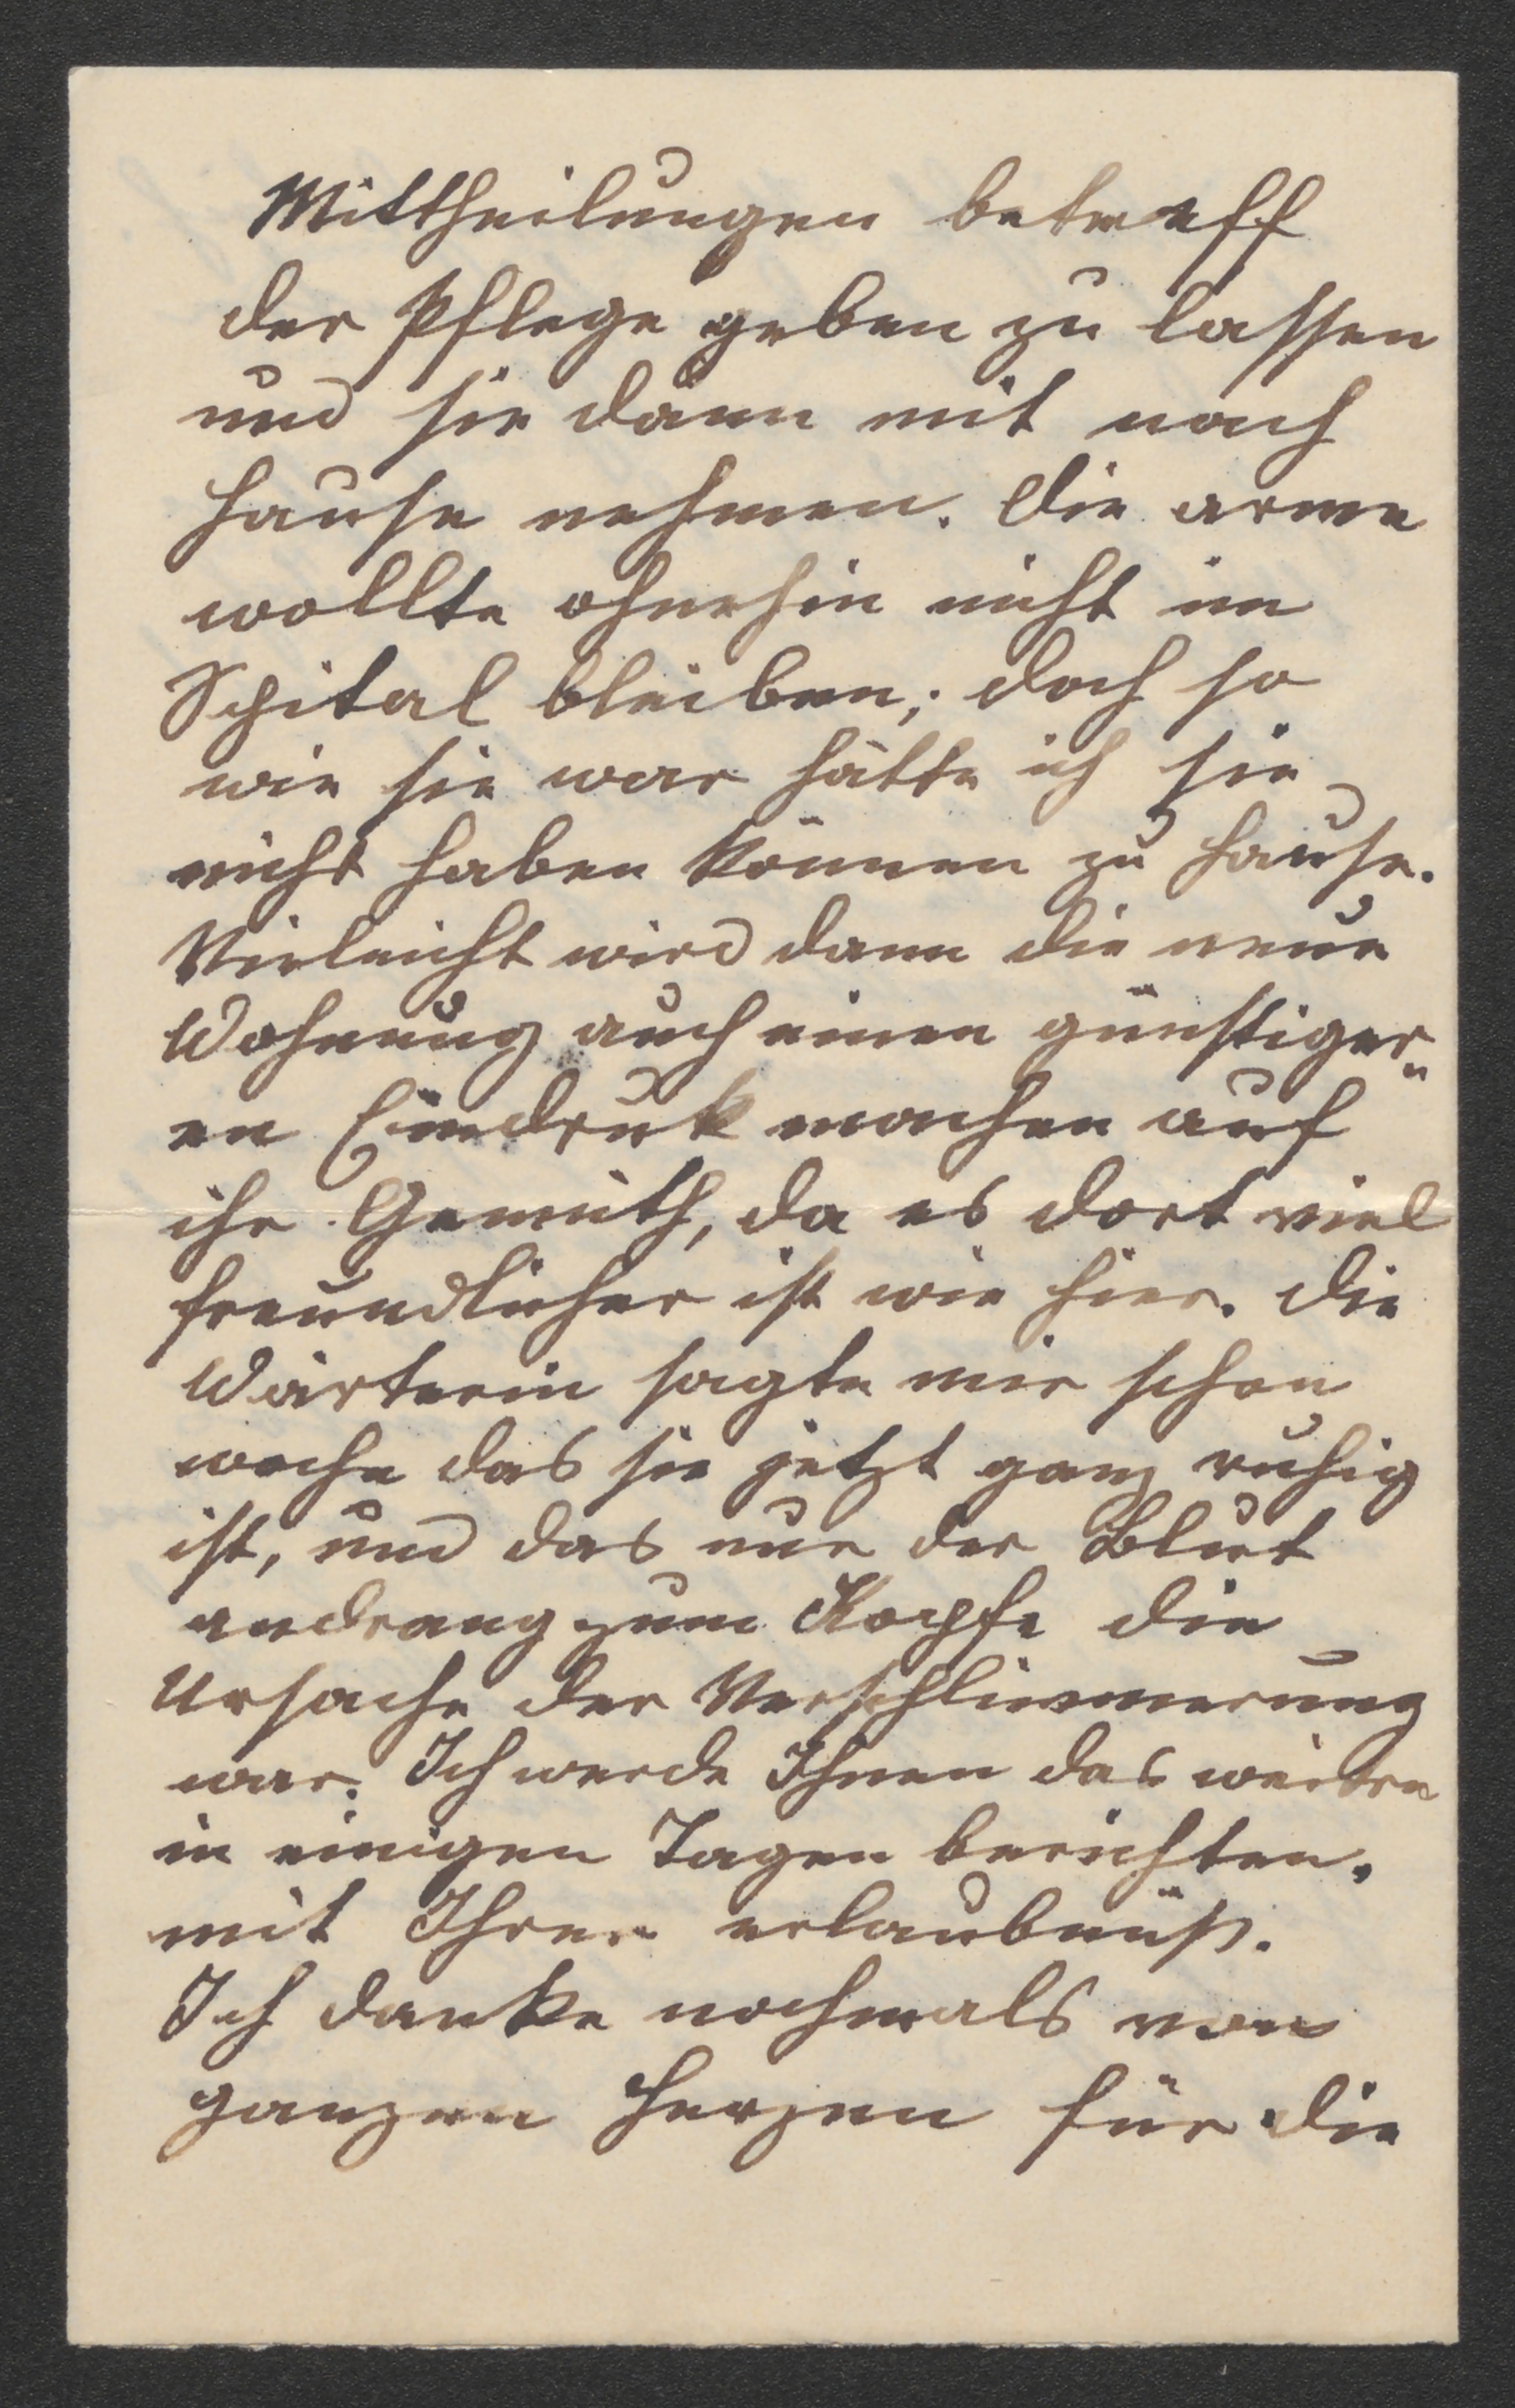 Mittheilungen betreff
der Pflege geben zu lassen
und sie dann mit nach
Hause nehmen. Die arme
wollte ohnehin nicht im
Spital bleiben; doch so
wie sie war hätte ich sie
nicht haben können zu Hause.
Vieleicht wird dann die neue
Wohnung auch einen günstiger„
en Eindruk machen auf
ihr Gemüth, da es dort viel
freundlicher ist wie hier. Die
Wärterin sagte mir schon
woche das sie jetzt ganz ruhig
ist, und das nur der Blut
andrang zum Kopfe die
Ursache der Verschlimmerung
war. Ich werde Ihnen das weitre
in einigen Tagen berichten,
mit Ihrer erlaubnüß.
Ich danke nochmals von
ganzen Herzen für die